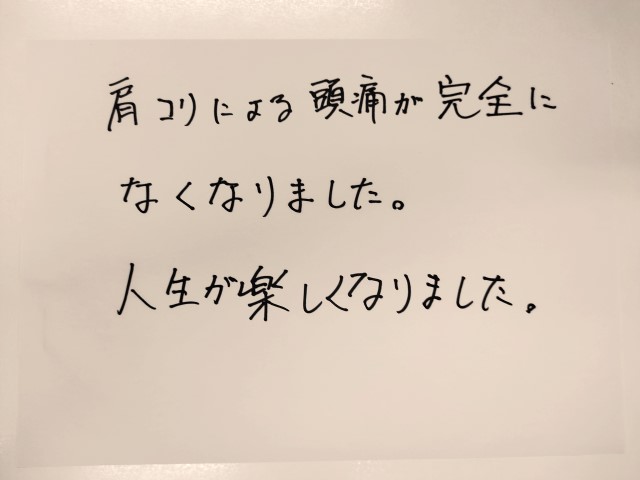 肩コリによる頭痛が完全に
なくなりました。
人生が楽しくなりました。